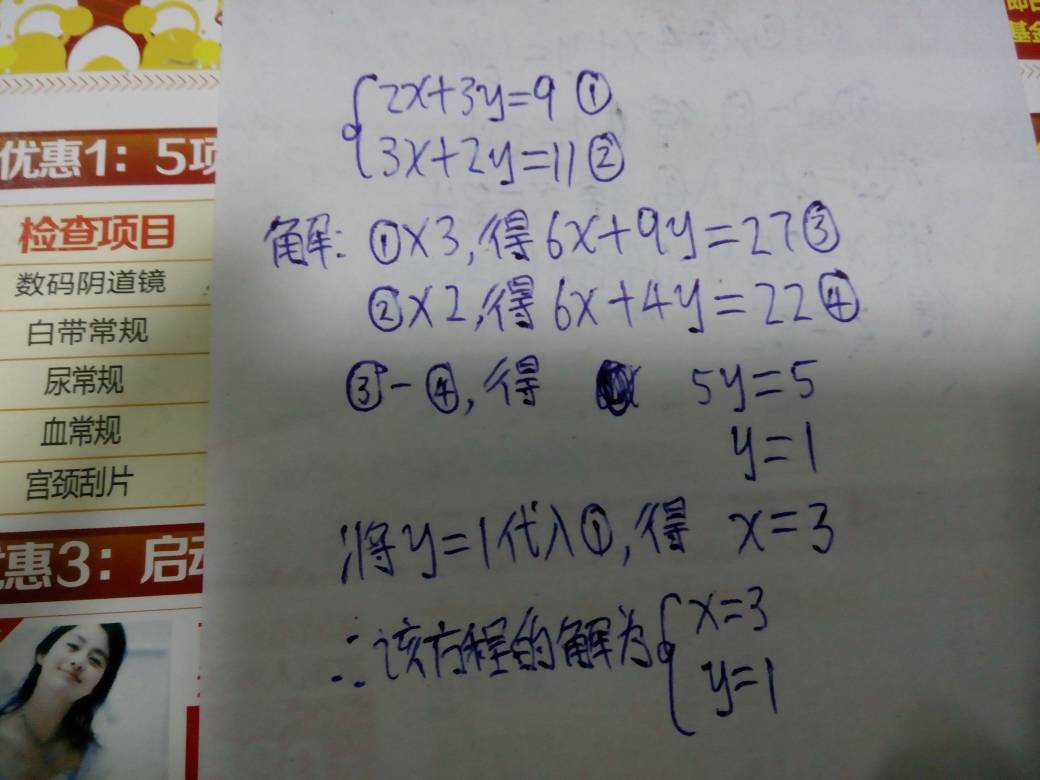 优惠1：5项
检查项目
数码阴道镜
白带常规
尿常规
血常规
宫颈刮片
惠3：启动
基金
2x+3y=9 ①
3x+2y=11 ②
解: ①×3,得 6x+9y=27 ③
②×2,得 6x+4y=22 ④
③-④,得 5y=5
y=1
将y=1代入①,得 x=3
∴该方程的解为 x=3
y=1